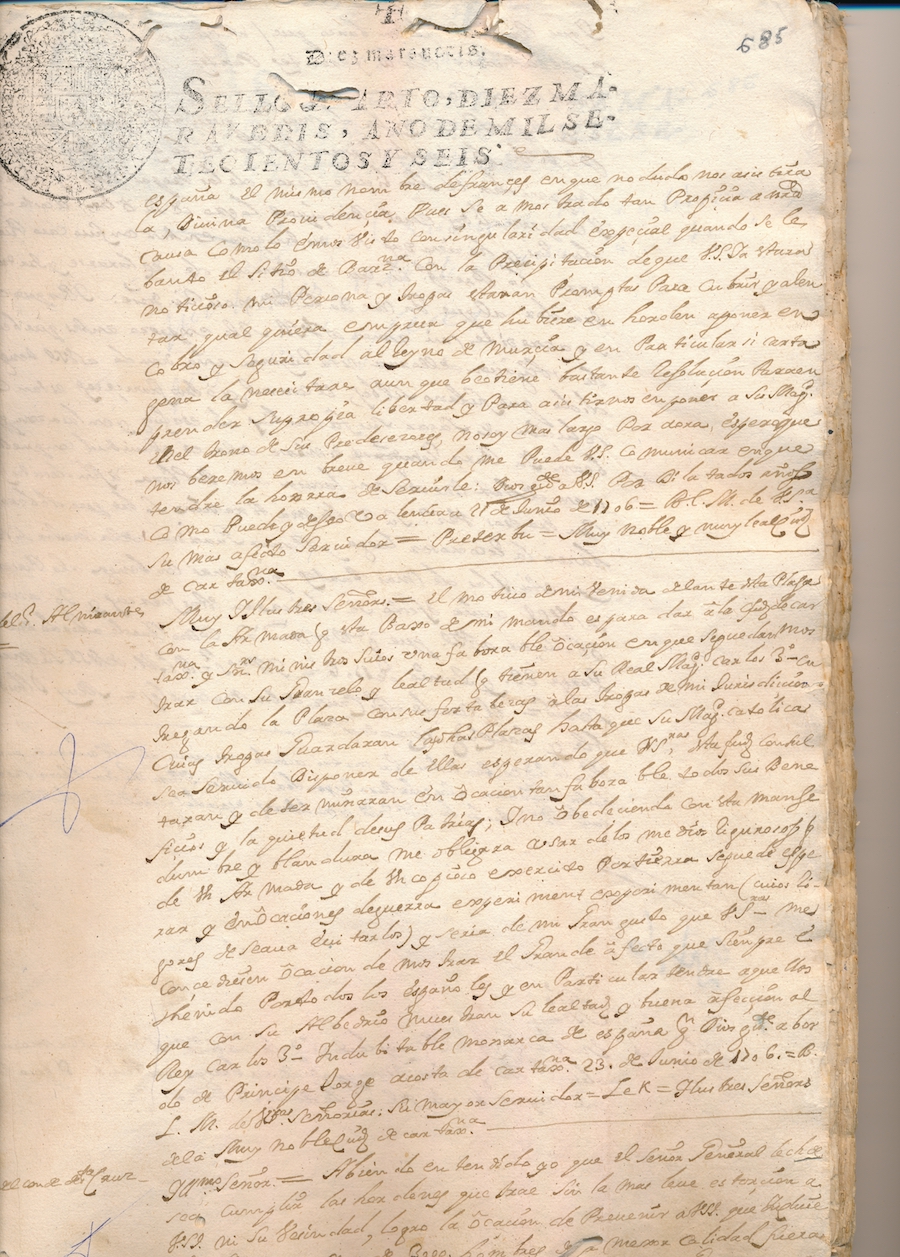 685
Diez maravedis.
SELLO QVARTO, DIEZ MA-
RAVEDIS, AÑO DE MIL SE-
TECIENTOS Y SEIS
españa el mismo nombre de frances en que no dudo nos asistira
la Divina Providencia, Pues se a mostrado tan Propicia a nrã
causa Como lo emos visto con singularidad expeçial quando se le
banto el sitio de Barzna. Con la Precipitacion de que V.S. Da
noticioso. mi Persona y tropas staran Promptas Para Cubrir y alen
tar, qual quiera empresa que hubiere en horden aponer en
Cobro y seguridad al Reyno de Murcia y en Particular si carta
gena la necesitare aun que be tiene bastante Resoluçion Para en
prender su propia libertad y Para asistirnos en poner a su Magd.
en el trono de sus Predecesores, no soy mas largo Por aora, espero que
nos beremos en breve quando me Puede V.S. Comunicar en que
tendre la honrra de servirle: Dios gde a V.S. Por Dilatados años
Como Puede y deseo Valencia 21 de Junio de 1706 = B. L. M. de V.S.
su mas afecto servidor = Peterbu = Muy Noble y muy leal Ciud
de cartaxna.
Sr. Almirante
Muy Illustres Señores = el motivo de mi Venida delante sta Plaza
con la Armada q sta Baxo de mi mando es para dar a la Ciud de car
taxna. y Srs. ministros suios una faborable ôcacion en que se puedan mos
trar con su Gran zelo y lealtad q tienen a su Real Magd. Carlos 3º en
tregando la Plaza con sus fortalezas à las tropas de mi Jurisdicion
Cuias tropas Guardaran dhas Plazas hasta que su Magd. catolicas
sea servido Disponer de ellas esperando que V.Sras, sta Ciud consul
taran y determinaran en ôcacion tan faborable todos sus Bene
ficios y la quietud de sus Patrias; I no ôbedeciendo con sta manse
dumbre y blandura me obligara a usar de los medios Rigurosos
de un Armada y de un copioso exercito Por tierra se puede espe
rar y en ôcaciones de guerra experimentan (cuios Ri-
gores desearia evitarlos) y seria de mi Gran gusto que V.Sras me
concediesen ôcacion de mostrar el Grande afecto que siempre e
thenido Por todos los españoles y en Particular tendre aquellos
que con su Albedrio muestran su lealtad y buena âfecçion al
Rey Carlos 3º Indubitable monarca de españa q Dios gde. a bor
do de Principe Jorge acosta de cartaxna. 23. de Junio de 1706. = B.
L. M. de Vras señorias: su mayor servidor = Lek = Ilustres Señores
de la Muy noble Ciud de cartaxna.
el conde de Sta Cruz
Yllmo Señor. = Abiendo entendido yo que el señor General
sea Cumplir las hordenes que trae sin la mas leve estorçion a
V.SS. ni su Vesindad, logro la ôcacion de Prevenir a V.SS. que
hombres menor calidad fueran